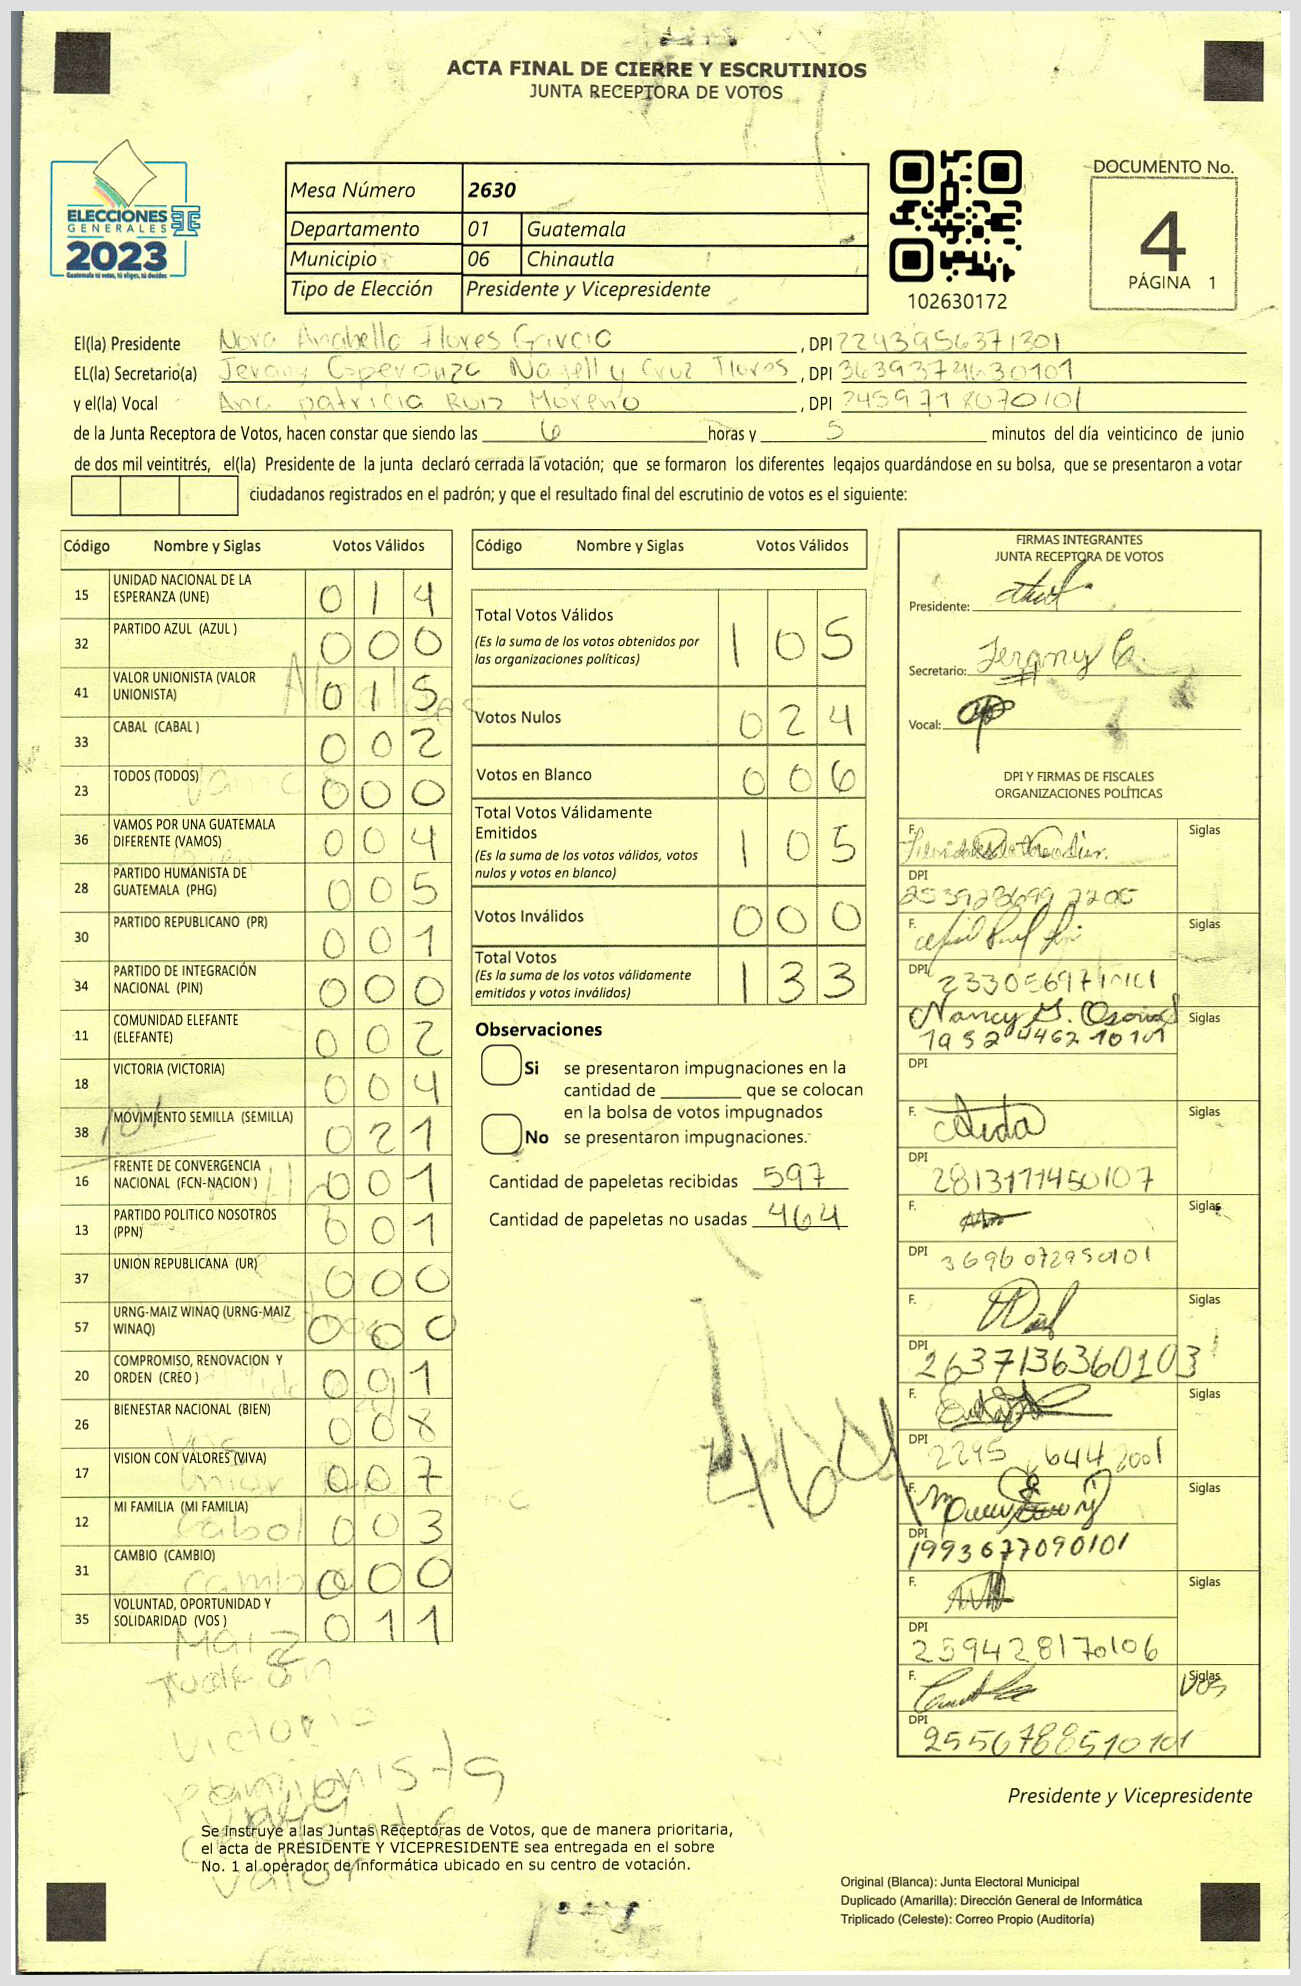 ACTA FINAL DE CIERRE Y ESCRUTINIOS
JUNTA RECEPTORA DE VOTOS
ELECCIONES
GENERALES
2023
Guatemala tú votas, tú eliges, tú decides
Mesa Número 2630
Departamento 01 Guatemala
Municipio 06 Chinautla
Tipo de Elección Presidente y Vicepresidente
102630172
DOCUMENTO No.
4
PÁGINA 1
El(la) Presidente Nora Anabella Flores Garcia, DPI 2243956371301
EL(la) Secretario(a) Jerany Esperanza Nayelly Cruz Flores, DPI 3639374630101
y el(la) Vocal Ana patricia Ruiz Moreno, DPI 2459718070101
de la Junta Receptora de Votos, hacen constar que siendo las 6 horas y 5 minutos del día veinticinco de junio
de dos mil veintitrés, el(la) Presidente de la junta declaró cerrada la votación; que se formaron los diferentes legajos guardándose en su bolsa, que se presentaron a votar
ciudadanos registrados en el padrón; y que el resultado final del escrutinio de votos es el siguiente:
Código Nombre y Siglas Votos Válidos
15 UNIDAD NACIONAL DE LA ESPERANZA (UNE) 0 1 4
32 PARTIDO AZUL (AZUL ) 0 0 0
41 VALOR UNIONISTA (VALOR UNIONISTA) 0 1 5
33 CABAL (CABAL ) 0 0 2
23 TODOS (TODOS) 0 0 0
36 VAMOS POR UNA GUATEMALA DIFERENTE (VAMOS) 0 0 4
28 PARTIDO HUMANISTA DE GUATEMALA (PHG) 0 0 5
30 PARTIDO REPUBLICANO (PR) 0 0 1
34 PARTIDO DE INTEGRACIÓN NACIONAL (PIN) 0 0 0
11 COMUNIDAD ELEFANTE (ELEFANTE) 0 0 2
18 VICTORIA (VICTORIA) 0 0 4
38 MOVIMIENTO SEMILLA (SEMILLA) 0 2 1
16 FRENTE DE CONVERGENCIA NACIONAL (FCN-NACION ) 0 0 1
13 PARTIDO POLITICO NOSOTROS (PPN) 0 0 1
37 UNION REPUBLICANA (UR) 0 0 0
57 URNG-MAIZ WINAQ (URNG-MAIZ WINAQ) 0 0 0
20 COMPROMISO, RENOVACION Y ORDEN (CREO ) 0 0 1
26 BIENESTAR NACIONAL (BIEN) 0 0 8
17 VISION CON VALORES (VIVA) 0 0 7
12 MI FAMILIA (MI FAMILIA) 0 0 3
31 CAMBIO (CAMBIO) 0 0 0
35 VOLUNTAD, OPORTUNIDAD Y SOLIDARIDAD (VOS ) 0 1 1
Maiz
Victoria
Valor
Código Nombre y Siglas Votos Válidos
Total Votos Válidos 1 0 5
(Es la suma de los votos obtenidos por
las organizaciones políticas)
Votos Nulos 0 2 4
Votos en Blanco 0 0 6
Total Votos Válidamente
Emitidos 1 0 5
(Es la suma de los votos válidos, votos
nulos y votos en blanco)
Votos Inválidos 0 0 0
Total Votos 1 3 3
(Es la suma de los votos válidamente
emitidos y votos inválidos)
Observaciones
Si se presentaron impugnaciones en la
cantidad de que se colocan
en la bolsa de votos impugnados
No se presentaron impugnaciones.
Cantidad de papeletas recibidas 597
Cantidad de papeletas no usadas 464
464
FIRMAS INTEGRANTES
JUNTA RECEPTORA DE VOTOS
Presidente:
Secretario: Jerany C.
Vocal:
DPI Y FIRMAS DE FISCALES
ORGANIZACIONES POLÍTICAS
F. Siglas
DPI
F. Siglas
DPI
Nancy G. Osorio Siglas
DPI
F. Aida Siglas
DPI 2813171450107
F. Siglas
DPI 3696072950101
F. Siglas
DPI 2637136360103
F. Siglas
DPI 2295 644 2001
F. Siglas
DPI 1993677090101
F. Siglas
DPI 259428170106
F. Siglas VOS
DPI 2556788510101
Presidente y Vicepresidente
Se instruye a las Juntas Receptoras de Votos, que de manera prioritaria,
el acta de PRESIDENTE Y VICEPRESIDENTE sea entregada en el sobre
No. 1 al operador de informática ubicado en su centro de votación.
Original (Blanca): Junta Electoral Municipal
Duplicado (Amarilla): Dirección General de Informática
Triplicado (Celeste): Correo Propio (Auditoría)